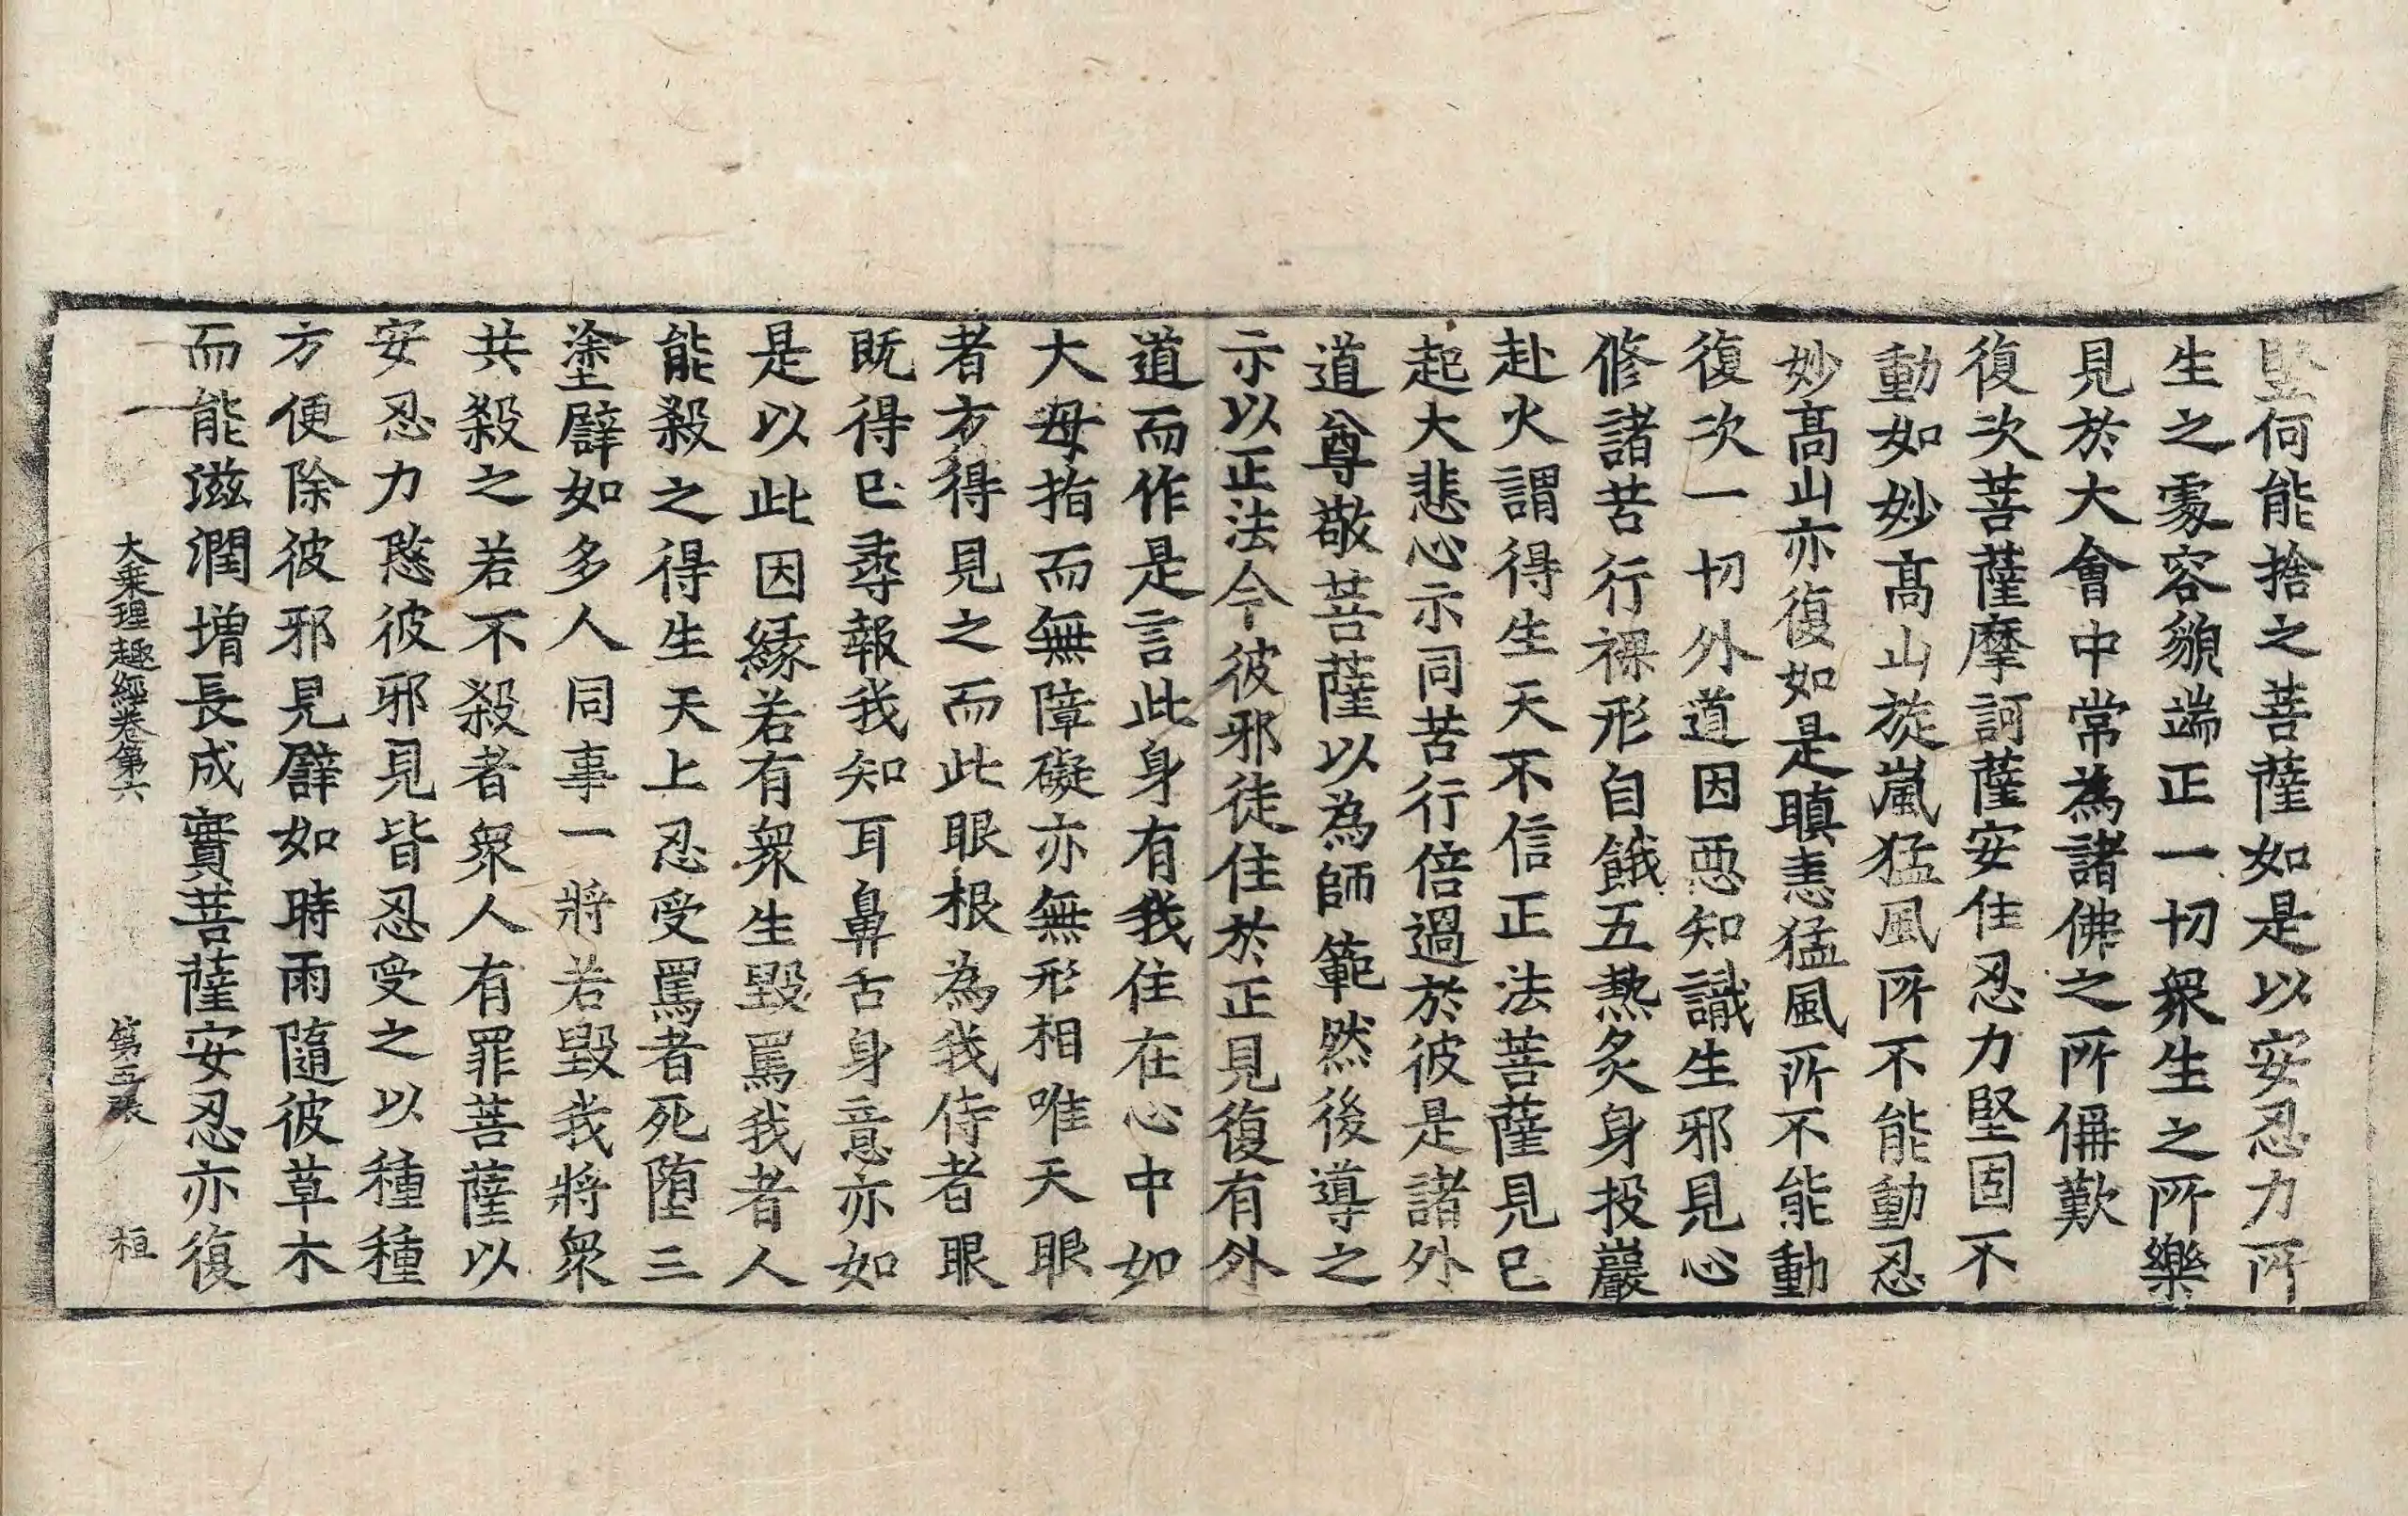 堅何能捨之菩薩如是以安忍力所
生之處容貌端正一切衆生之所樂
見於大會中常為諸佛之所偁歎
復次菩薩摩訶薩安住忍力堅固不
動如妙高山旋嵐猛風所不能動忍
妙高山亦復如是瞋恚猛風所不能動
復次一切外道因惡知識生邪見心
修諸苦行裸形自餓五熱炙身投巖
赴火謂得生天不信正法菩薩見已
起大悲心示同苦行倍過於彼是諸外
道尊敬菩薩以為師範然後導之
示以正法令彼邪徒住於正見復有外
道而作是言此身有我住在心中如
大母指而無障礙亦無形相唯天眼
者方得見之而此眼根為我侍者眼
既得已尋報我知耳鼻舌身意亦如
是以此因緣若有衆生毀罵我者人
能殺之得生天上忍受罵者死墮三
塗譬如多人同事一將若毀我將衆
共殺之若不殺者衆人有罪菩薩以
安忍力愍彼邪見皆忍受之以種種
方便除彼邪見譬如時雨隨彼草木
而能滋潤增長成實菩薩安忍亦復
大乘理趣經卷第六 第五張 桓